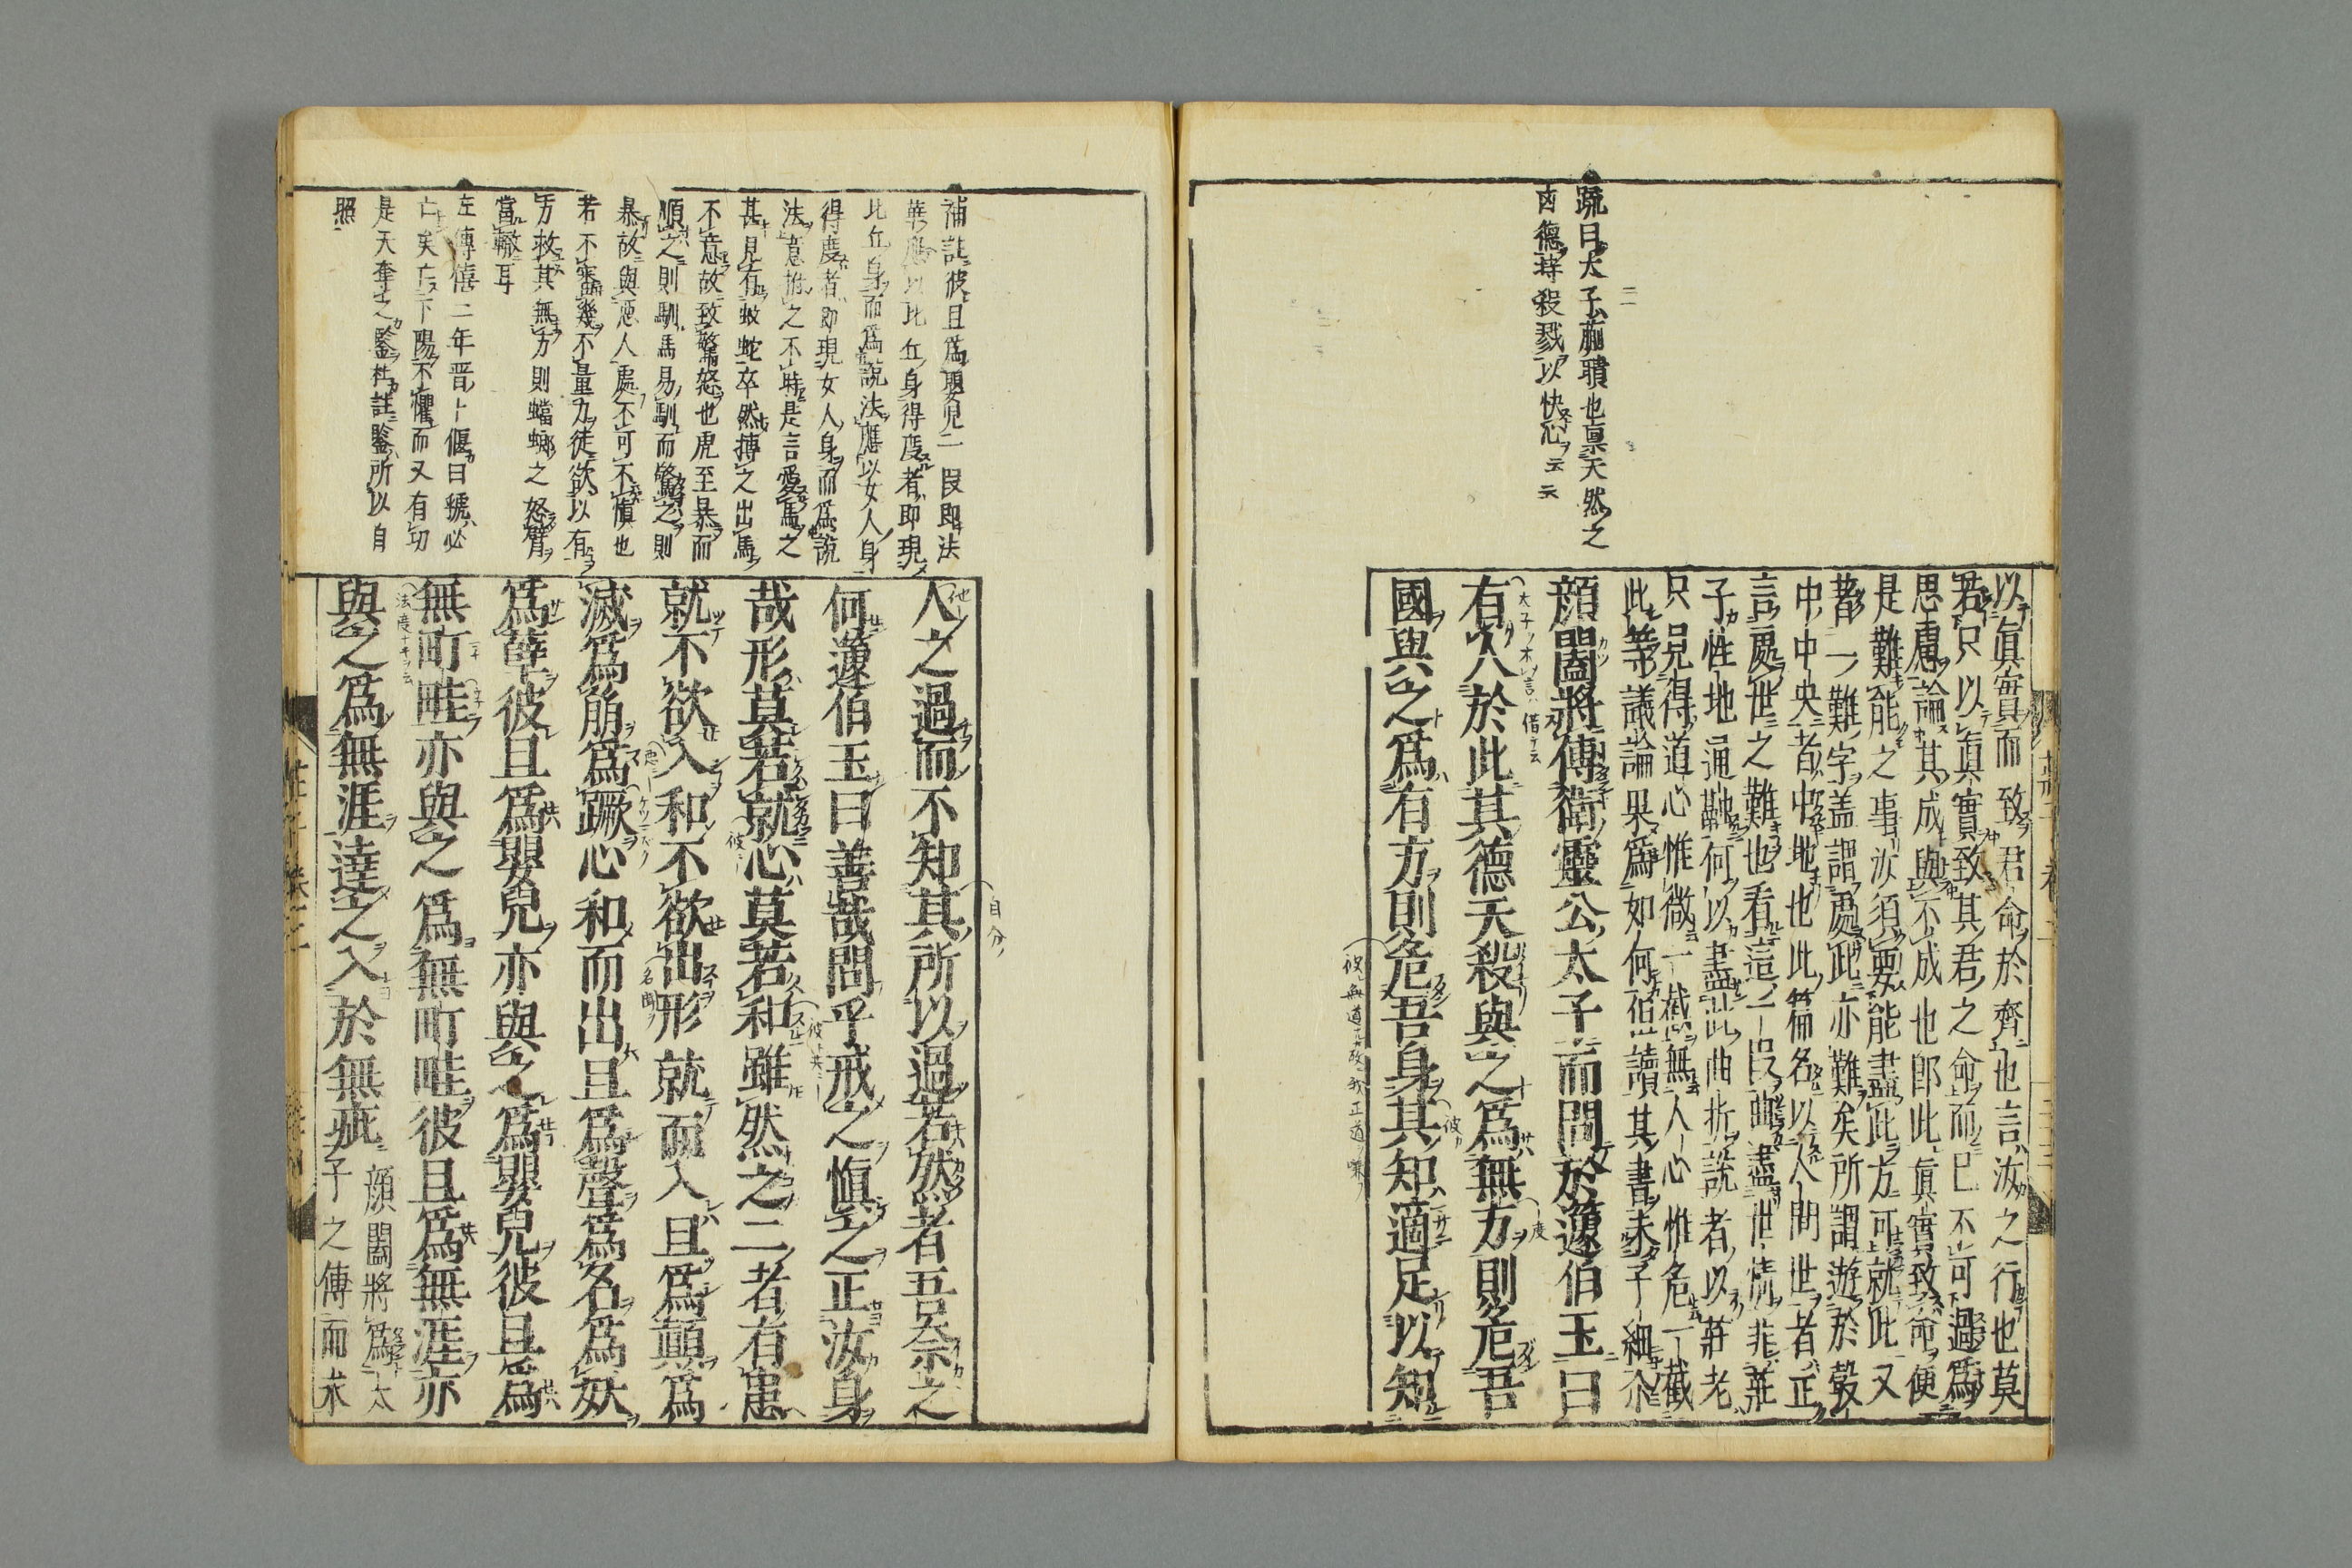 疏曰太子蒯聵也稟天然之
凶德持殺戮以快心云云
以眞實而致君命於齊也言汝之行也莫
若只以眞實致其君之命而已不可過爲
思慮論其成與不成也即此眞實致命便
是難能之事汝須要能盡此方可就此又
着一難字盖謂處此亦難矣所謂遊於彀
中中央者中地也此篇名以人間世者正
言處世之難也看這一段曲盡世情非莊
子性地通融何以盡此曲折說者以莊老
只見得道心惟微一截無人心惟危一截
此等議論果爲如何但讀其書未子細尒
顏闔將傅衛靈公太子而問於蘧伯玉曰
有人於此其德天殺與之爲無方則危吾
國與之爲有方則危吾身其知適足以知
補註彼且爲嬰兒二段即法
華應以比丘身得度者即現
比丘身而爲說法應以女人身
得度者即現女人身而爲說
法意推之不時是言愛馬之
甚見有蚊蛇卒然搏之出馬
不意故致驚怒也虎至暴而
順之則馴馬易馴而驚之則
暴故與惡人處不可不愼也
若不審幾不量力徒欲以有
方救其無方則蟷螂之怒臂
當轍耳
左傳僖二年晋卜偃曰虢必
亡矣亡下陽不懼而又有功
是天奪之鑒杜註鑒所以自
照
人之過而不知其所以過若然者吾奈之
何蘧伯玉曰善哉問乎戒之愼之正汝身
哉形莫若就心莫若和雖然之二者有患
就不欲入和不欲出形就而入且爲顚爲
滅爲崩爲蹶心和而出且爲聲爲名爲妖
爲孽彼且爲嬰兒亦與之爲嬰兒彼且爲
無町畦亦與之爲無町畦彼且爲無涯亦
與之爲無涯達之入於無疵
顏闔將爲太
子之傅而求